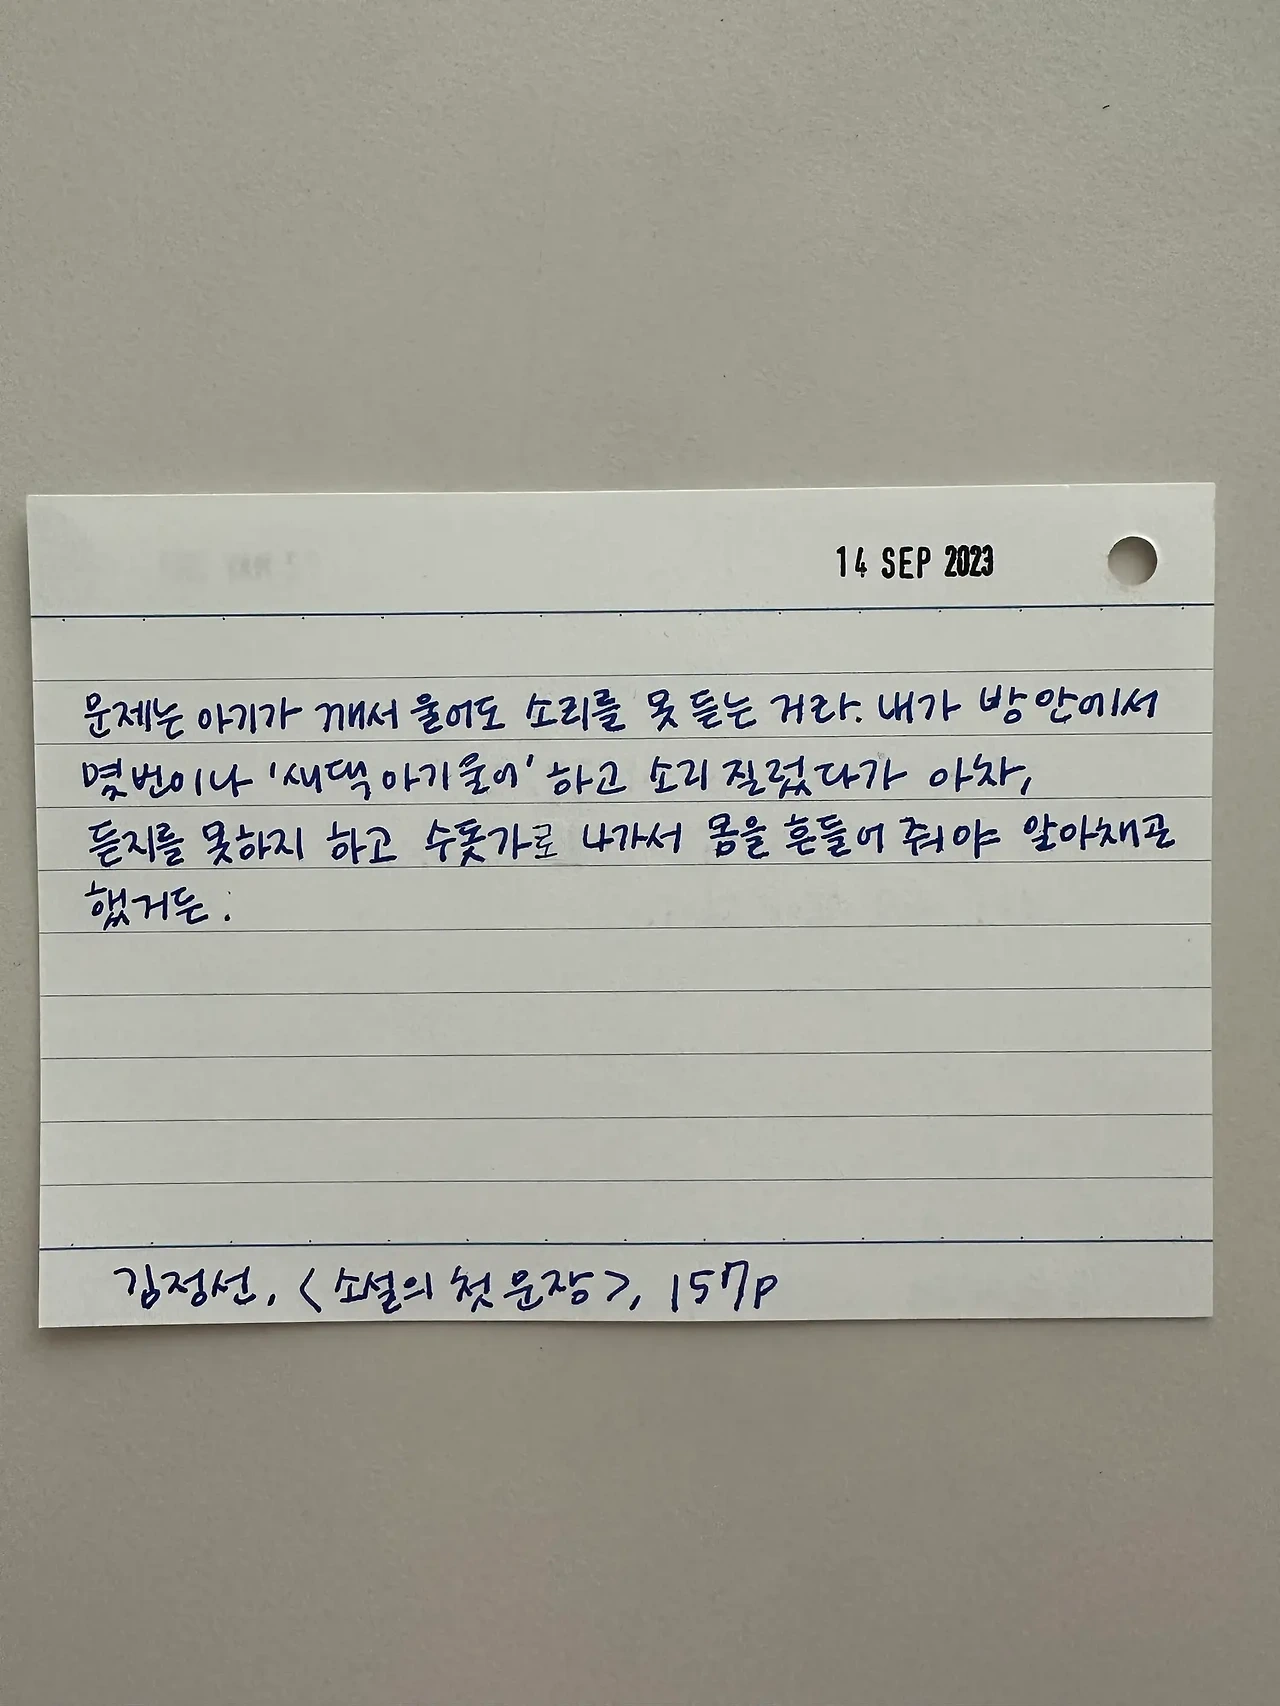 14 SEP 2023
문제는 아기가 깨서 울어도 소리를 못 듣는 거라. 내가 방 안에서
몇번이나 '새댁 아기 울어' 하고 소리 질렀다가 아차,
듣지를 못하지 하고 수돗가로 나가서 몸을 흔들어 줘야 알아채곤
했거든.
김정선, <소설의 첫 문장>, 157p